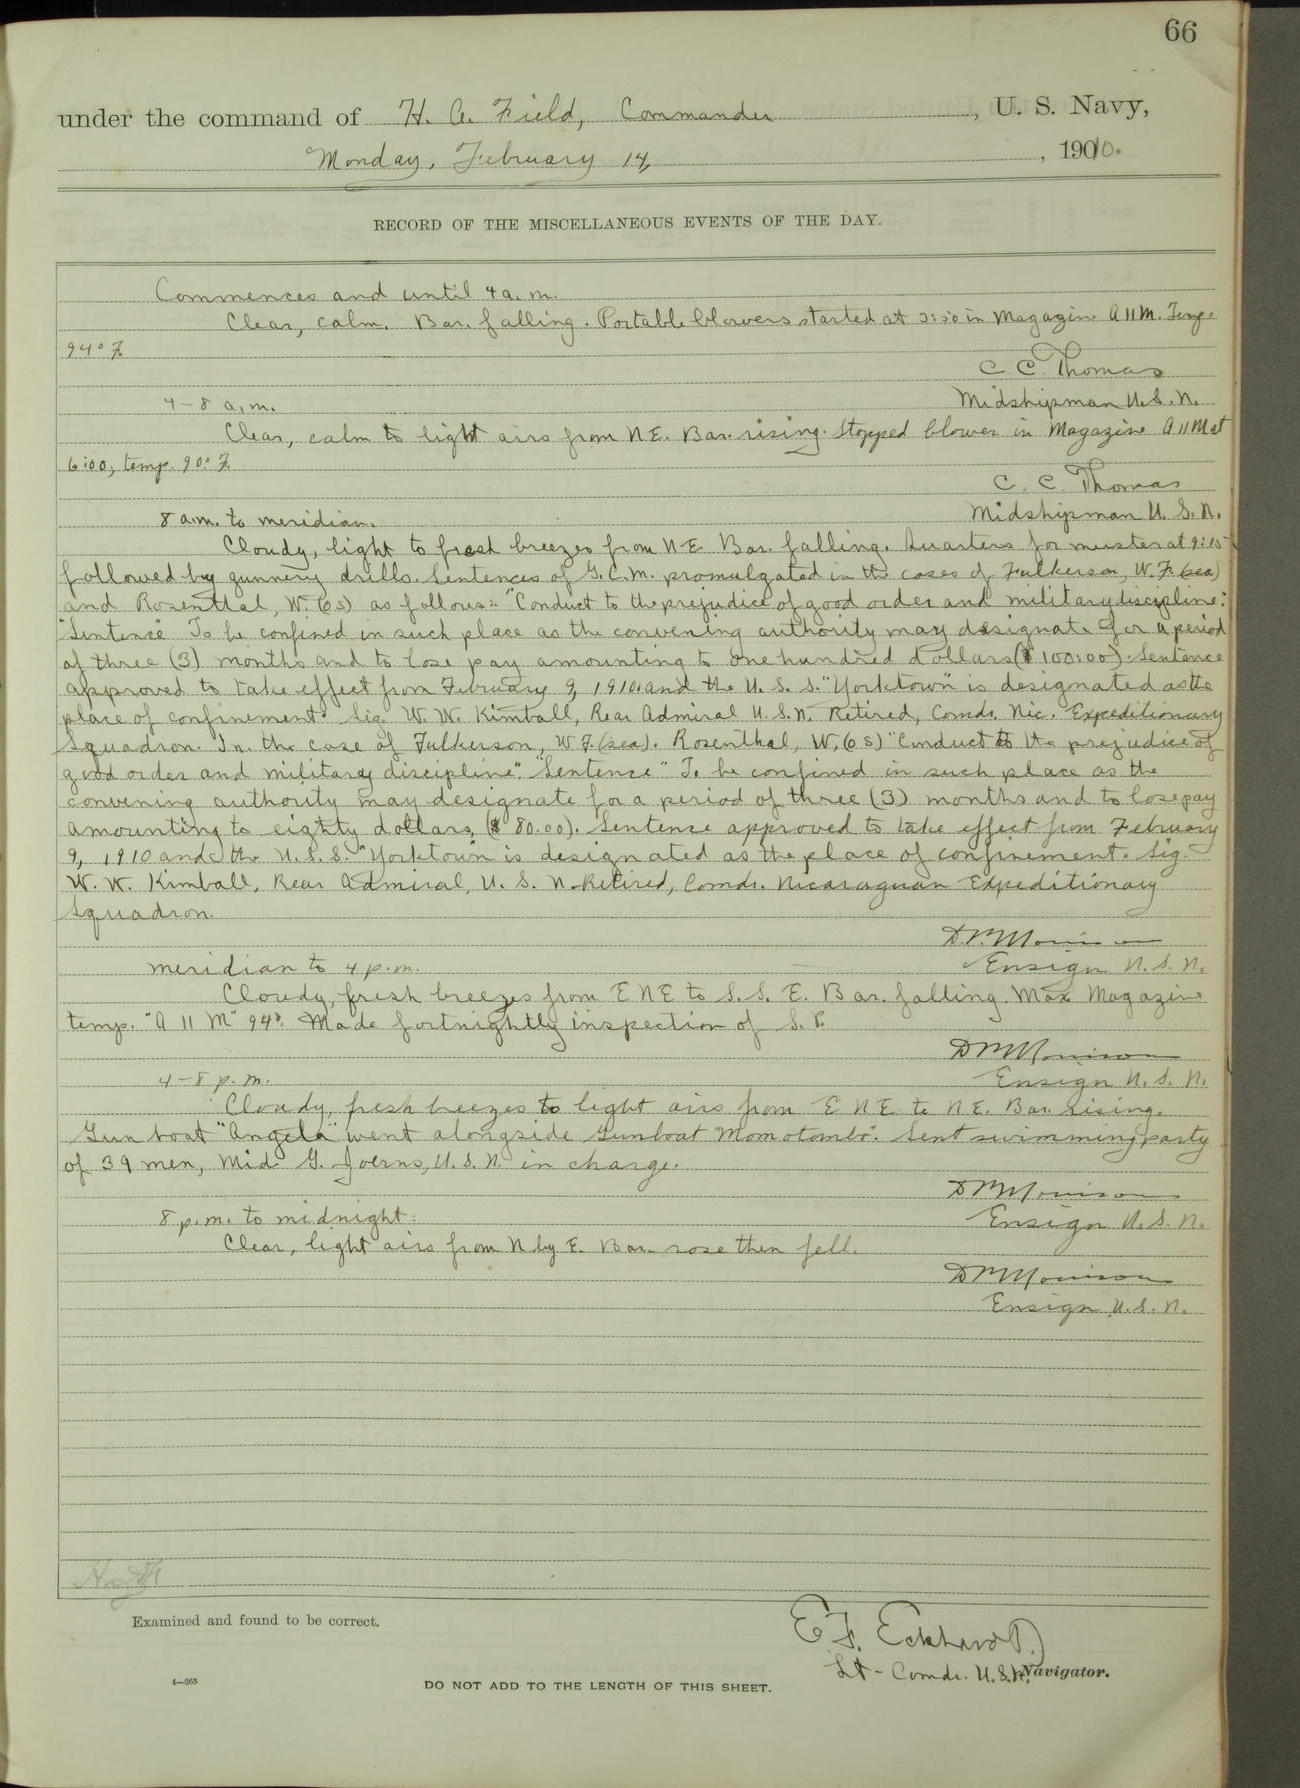 66
under the command of H. A. Field, Commander, U. S. Navy,
Monday, February 14, 1910.
RECORD OF THE MISCELLANEOUS EVENTS OF THE DAY.
Commences and until 4 a. m.
Clear, calm. Bar. falling. Portable blowers started at in Magazine A 11 M. Temp.
94° F.
C. C. Thomas
4-8 a.m. Midshipman U.S.N.
Clear, calm to light airs from NE. Bar. rising. Stopped blower in Magazine A 11 M at
6:00, temp. 90° F.
C. C. Thomas
8 a.m. to meridian. Midshipman U. S. N.
Cloudy, light to fresh breezes from NE Bar. falling. Quarters for muster at 9:15
followed by gunnery drills. Sentences of G.C.M. promulgated in the cases of Fulkerson, W.F. (sea)
and Rosenthal, W. (o s) as follows:- "Conduct to the prejudice of good order and military discipline."
"Sentence" To be confined in such place as the convening authority may designate for a period
of three (3) months and to lose pay amounting to one hundred dollars ($100.00). Sentence
approved to take effect from February 9, 1910. and the U. S. S. "Yorktown" is designated as the
place of confinement. Sig. W. W. Kimball, Rear Admiral U.S.N. Retired, Comdr. Nic. Expeditionary
Squadron. In the case of Fulkerson, W.F. (sea). Rosenthal, W. (o s) "Conduct to the prejudice of
good order and military discipline". "Sentence" To be confined in such place as the
convening authority may designate for a period of three (3) months and to lose pay
amounting to eighty dollars, ($ 80.00). Sentence approved to take effect from February
9, 1910 and the U. S. S. "Yorktown" is designated as the place of confinement. Sig.
W. W. Kimball, Rear Admiral, U. S. N. Retired, Comdr. Nicaraguan Expeditionary
Squadron.
D. M. Morrison
meridian to 4 p.m. Ensign U. S. N.
Cloudy, fresh breezes from ENE to S. S. E. Bar. falling. Max Magazine
temp. "A 11 M" 94°. Made fortnightly inspection of
D M Morrison
4-8 p. m. Ensign U. S. N.
Cloudy, fresh breezes to light airs from E N E to NE. Bar. rising.
Gunboat "Angela" went alongside Gunboat "Momotombo". Sent swimming party
of 39 men, Mid. G. Joerns, U.S.N. in charge.
D M Morrison
8 p.m. to midnight: Ensign U. S. N.
Clear, light airs from N by E. Bar. rose then fell.
D M Morrison
Ensign U. S. N.
Examined and found to be correct.
E. F. Eckhardt
Lt - Comdr. U.S.N. Navigator.
4—265
DO NOT ADD TO THE LENGTH OF THIS SHEET.